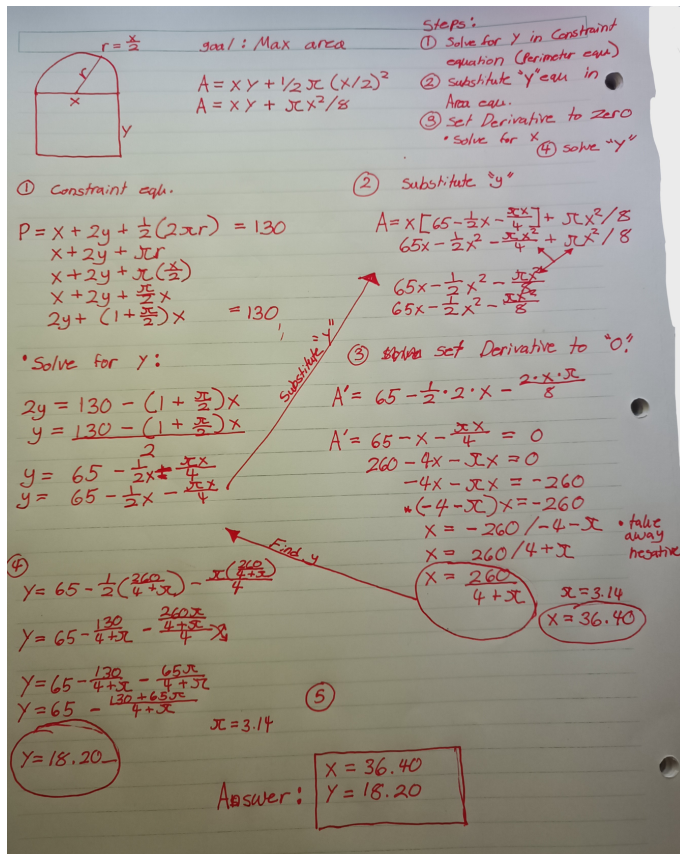 r = x/2
goal: Max area
r
x
y
A = xy + 1/2 π (x/2)²
A = xy + πx²/8
Steps:
① Solve for y in Constraint
equation (Perimeter equ)
② substitute "y" equ in
Area equ.
③ set Derivative to zero
• solve for x
④ solve "y"
① Constraint equ.
P = x + 2y + 1/2 (2πr) = 130
x + 2y + πr
x + 2y + π(x/2)
x + 2y + π/2 x
2y + (1 + π/2)x = 130
• Solve for y:
2y = 130 - (1 + π/2)x
y = 130 - (1 + π/2)x / 2
y = 65 - 1/2x - πx/4
y = 65 - 1/2x - πx/4
Substitute "y"
② Substitute "y"
A = x[65 - 1/2x - πx/4] + πx²/8
65x - 1/2x² - πx²/4 + πx²/8
65x - 1/2x² - πx²/8
65x - 1/2x² - πx²/8
③ set Derivative to "0".
A' = 65 - 1/2 · 2 · x - 2·x·π/8
A' = 65 - x - πx/4 = 0
260 - 4x - πx = 0
-4x - πx = -260
(-4 - π)x = -260
x = -260/-4-π
• take away negative
x = 260/4+π
x = 260/4+π
π = 3.14
x = 36.40
Find y
④
y = 65 - 1/2(260/4+π) - π(260/4+π)/4
y = 65 - 130/4+π - 260π/4+π/4
y = 65 - 130/4+π - 65π/4+π
y = 65 - 130+65π/4+π
π = 3.14
y = 18.20
⑤
Answer:
x = 36.40
y = 18.20